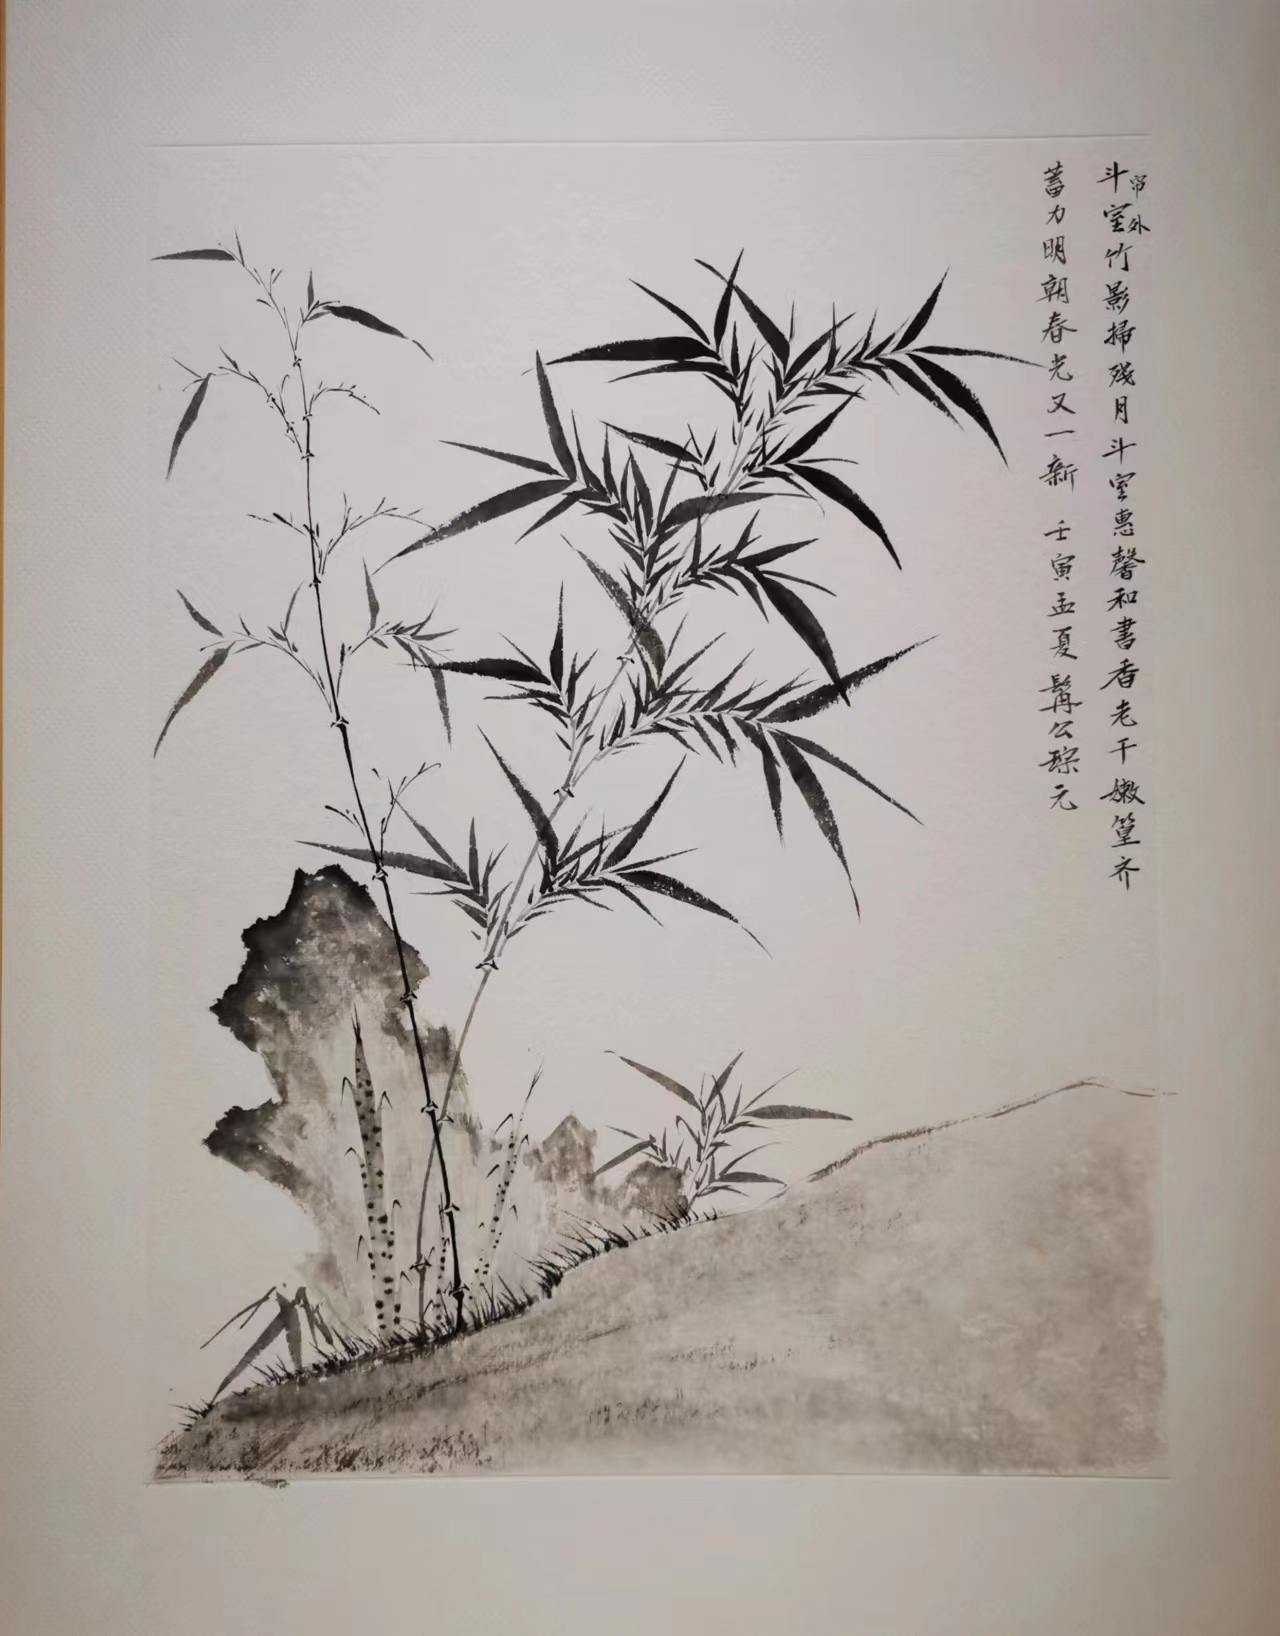 斗室竹影掃殘月斗室惠馨和書香老干嫩篁齐
帘外
蓄力明朝春光又一新 壬寅孟夏髯公琮元